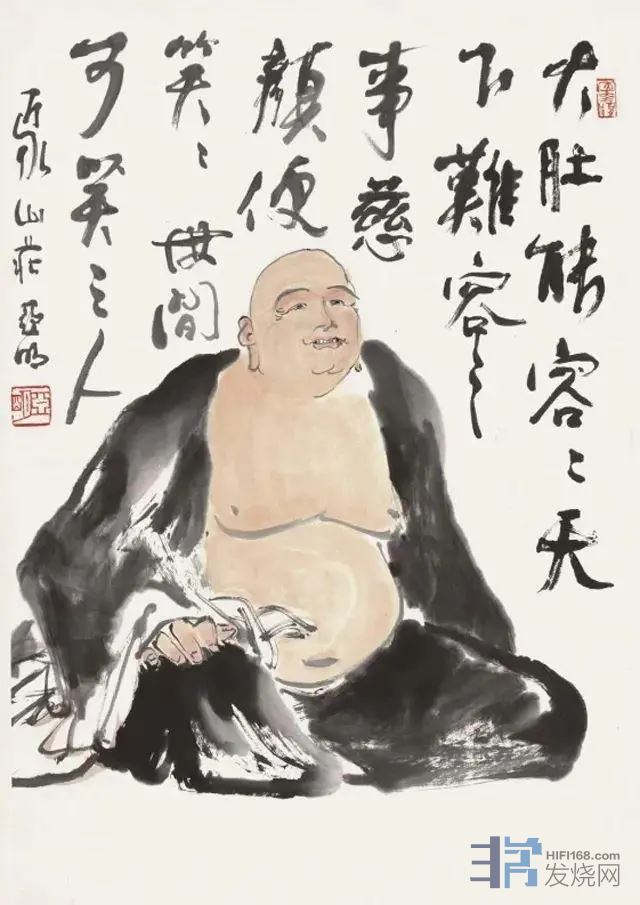 大肚能容〻天
下難容之
事慈
顏便
笑〻世間
可笑之人
近水山莊亞明
HIFI168.com
发烧网